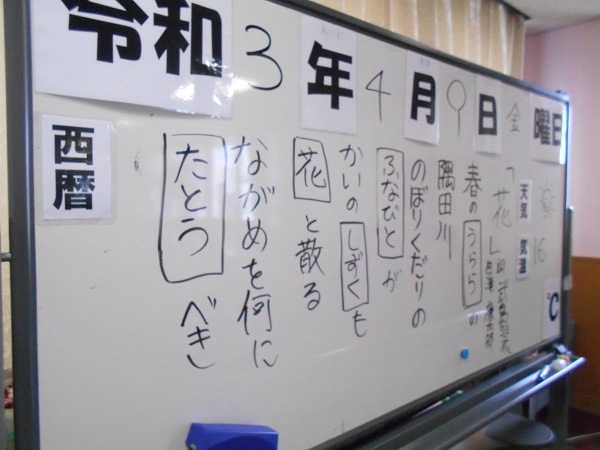 令和3年4月9日金曜日
西暦
天気
気温 16 ℃
「花」
春のうららの
隅田川
のぼりくだりの
ふなびとが
かいのしずくも
花と散る
ながめを何に
たとうべき